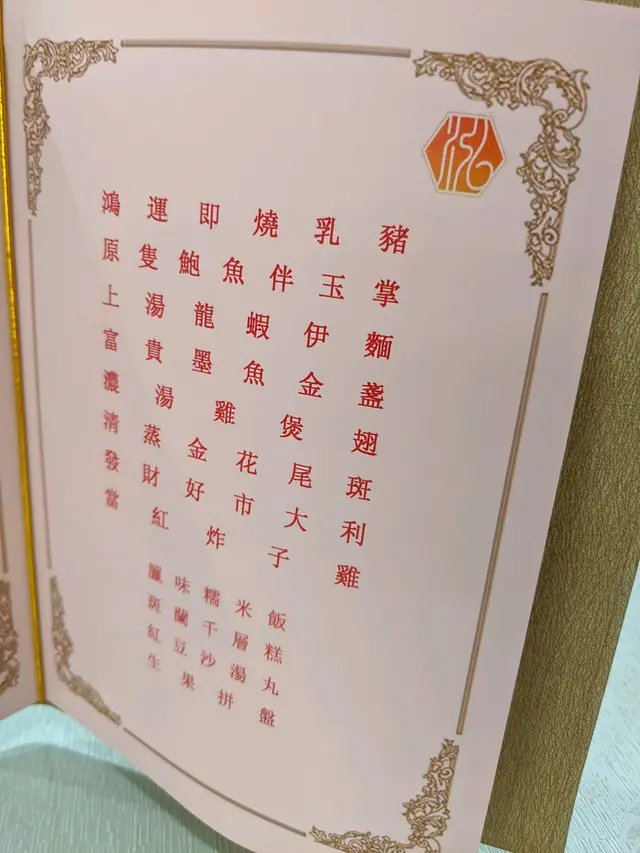 鴻運即燒乳豬
原隻鮑魚伴玉掌
上湯龍蝦伊麵
富貴墨魚金盞
濃湯雞煲翅
清蒸金花尾斑
發財好市大利
當紅炸子雞
臘味糯米飯
斑蘭千層糕
紅豆沙湯丸
生果拼盤